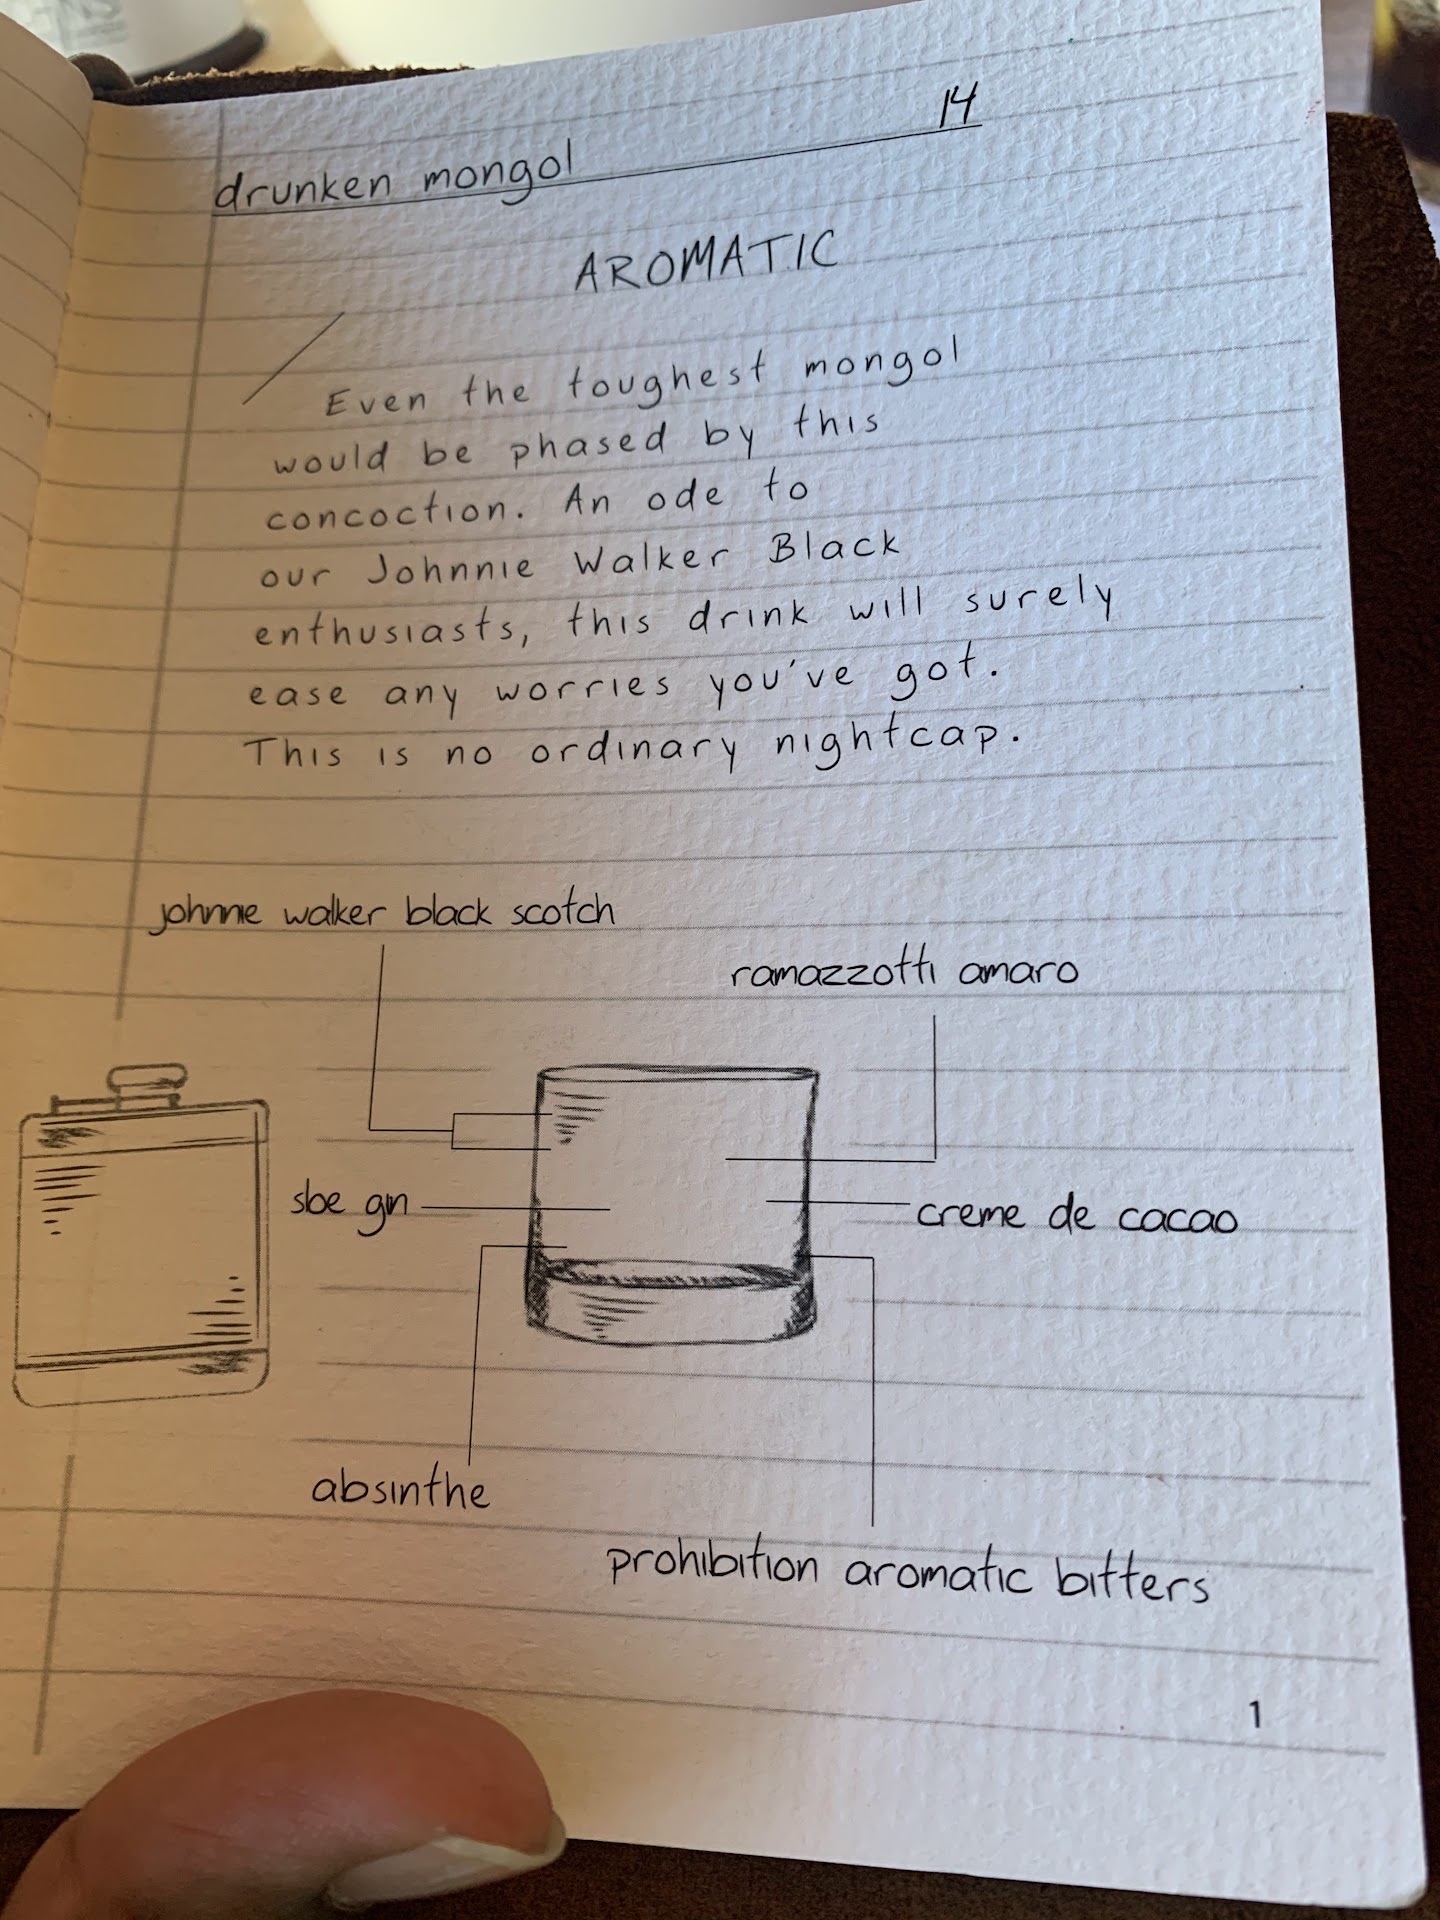 drunken mongol 14
AROMATIC
Even the toughest mongol
would be phased by this
concoction. An ode to
our Johnnie Walker Black
enthusiasts, this drink will surely
ease any worries you've got.
This is no ordinary nightcap.
johnnie walker black scotch
ramazzotti amaro
sloe gin
creme de cacao
absinthe
prohibition aromatic bitters
1